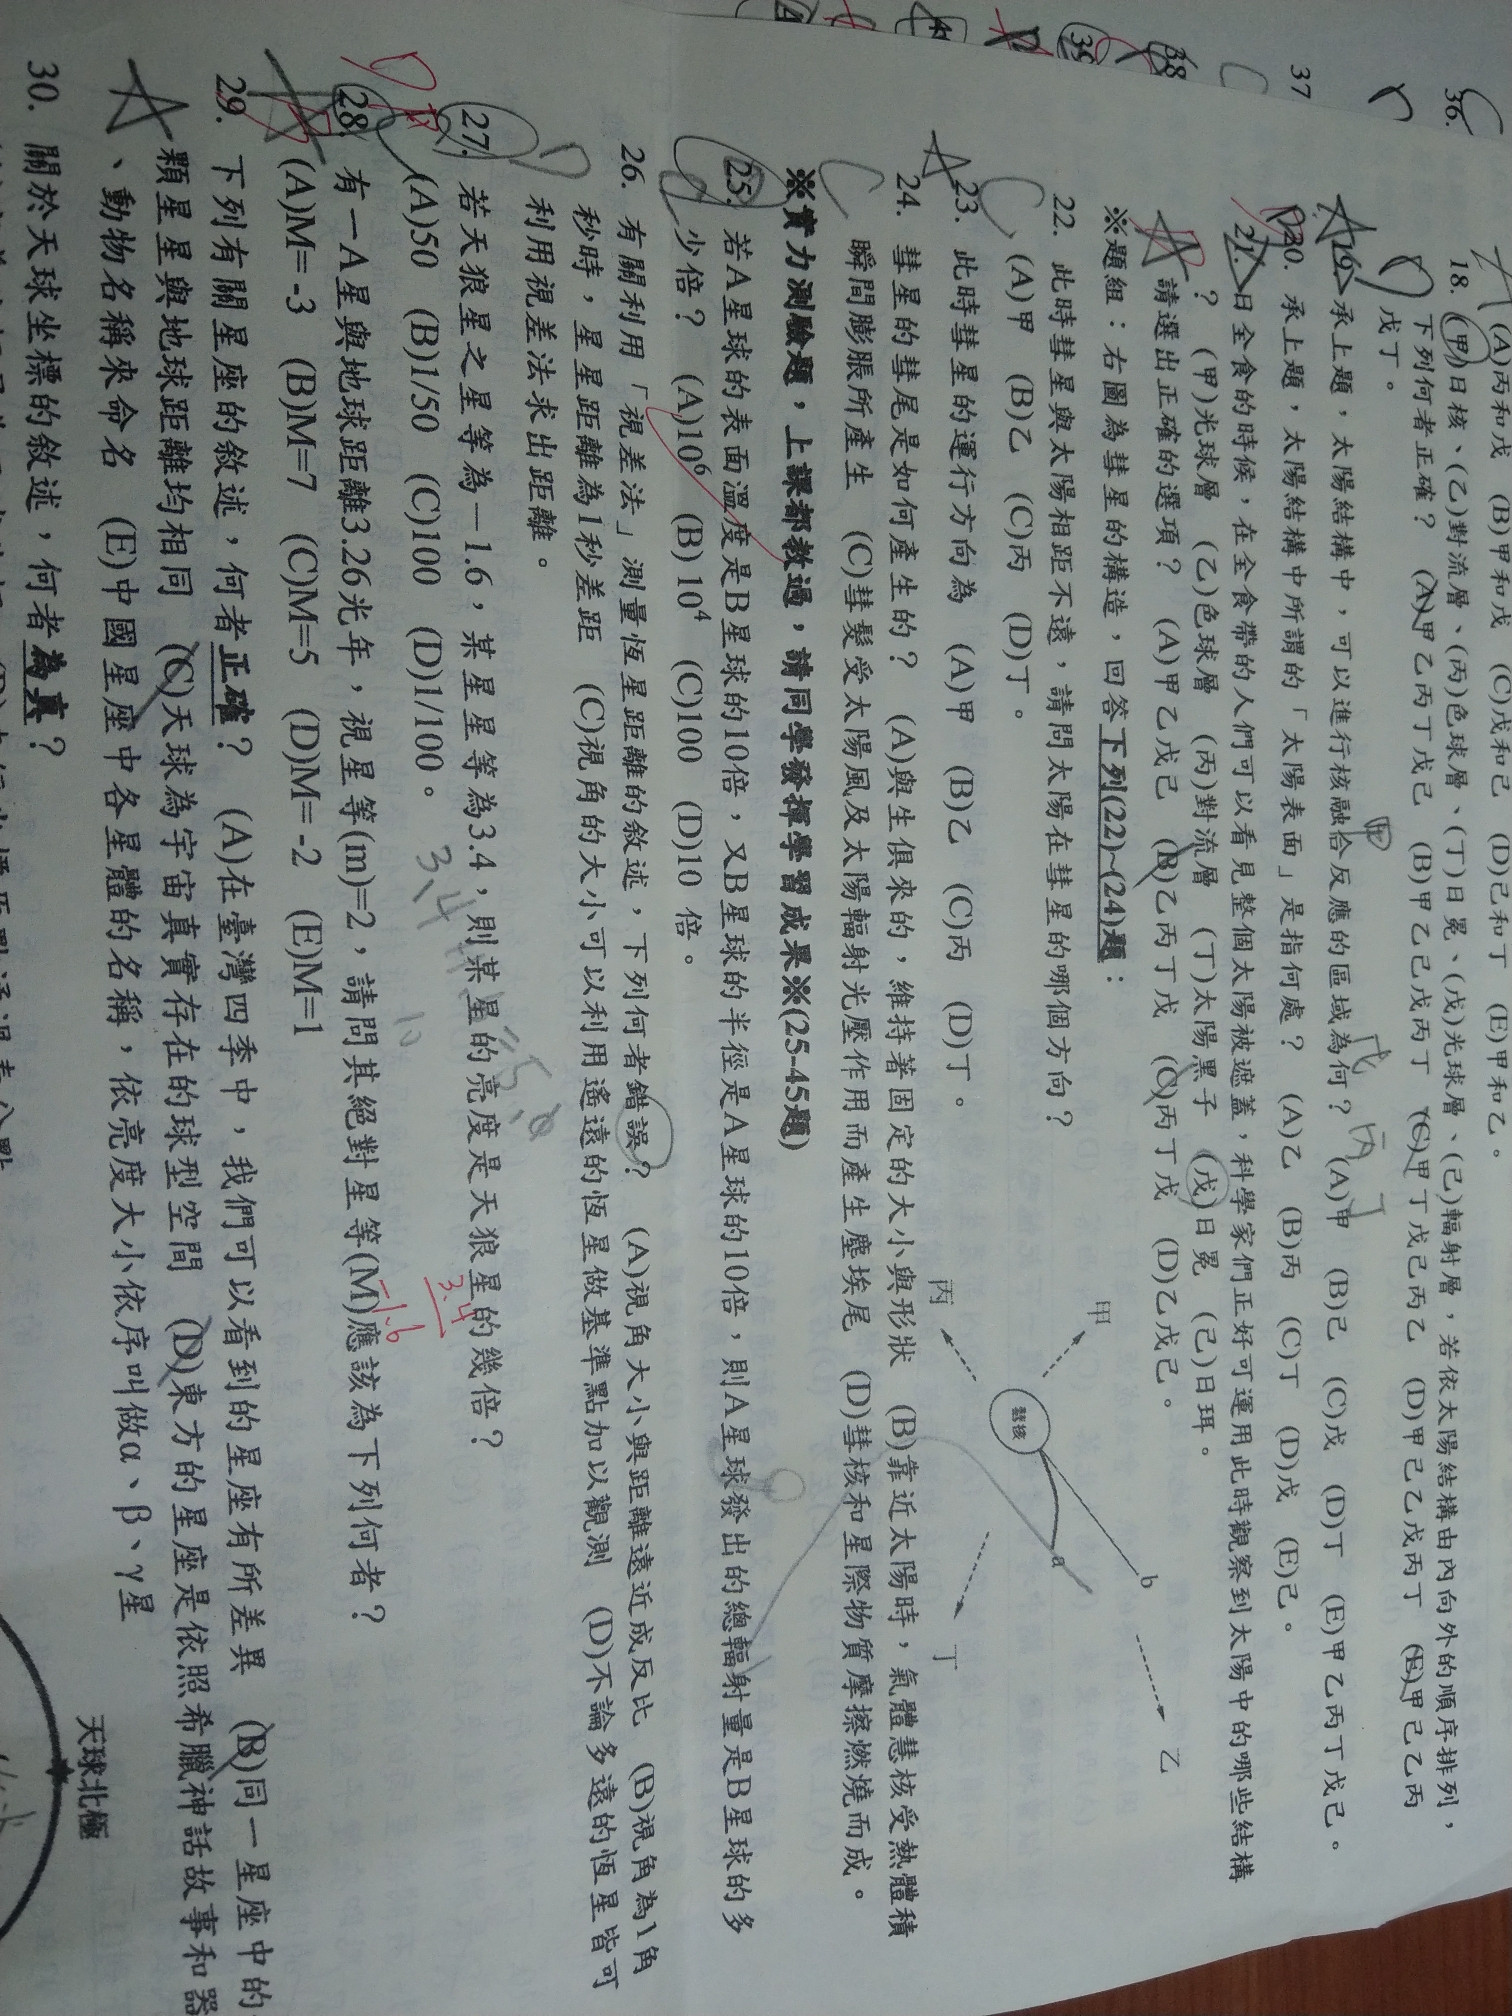 (A)丙和戊 (B)甲和戊 (C)戊和己 (D)己和丁 (E)甲和乙。
18. (甲)日核、(乙)對流層、(丙)色球層、(丁)日冕、(戊)光球層、(己)輻射層，若依太陽結構由內向外的順序排列，
下列何者正確？ (A)甲乙丙丁戊己 (B)甲乙己戊丙丁 (C)甲丁戊己丙乙 (D)甲己乙戊丙丁 (E)甲己乙丙
戊丁。
19. 承上題，太陽結構中，可以進行核融合反應的區域為何？ (A)甲 (B)己 (C)戊 (D)丁 (E)甲乙丙丁戊己。
20. 承上題，太陽結構中所謂的「太陽表面」是指何處？ (A)乙 (B)丙 (C)丁 (D)戊 (E)己。
21. 日全食的時候，在全食帶的人們可以看見整個太陽被遮蓋，科學家們正好可運用此時觀察到太陽中的哪些結構
？ (甲)光球層 (乙)色球層 (丙)對流層 (丁)太陽黑子 (戊)日冕 (己)日珥。
請選出正確的選項？ (A)甲乙戊己 (B)乙丙丁戊 (C)丙丁戊 (D)乙戊己。
※題組：右圖為彗星的構造，回答下列(22)~(24)題：
22. 此時彗星與太陽相距不遠，請問太陽在彗星的哪個方向？
(A)甲 (B)乙 (C)丙 (D)丁。
23. 此時彗星的運行方向為 (A)甲 (B)乙 (C)丙 (D)丁。
甲
乙
丙
丁
彗核
a
b
24. 彗星的彗尾是如何產生的？ (A)與生俱來的，維持著固定的大小與形狀 (B)靠近太陽時，氣體慧核受熱體積
瞬間膨脹所產生 (C)彗髮受太陽風及太陽輻射光壓作用而產生塵埃尾 (D)彗核和星際物質摩擦燃燒而成。
※實力測驗題，上課都教過，請同學發揮學習成果※(25-45題)
25. 若A星球的表面溫度是B星球的10倍，又B星球的半徑是A星球的10倍，則A星球發出的總輻射量是B星球的多
少倍？ (A)10⁶ (B)10⁴ (C)100 (D)10 倍。
26. 有關利用「視差法」測量恆星距離的敘述，下列何者錯誤？ (A)視角大小與距離遠近成反比 (B)視角為1角
秒時，星星距離為1秒差距 (C)視角的大小可以利用遙遠的恆星做基準點加以觀測 (D)不論多遠的恆星皆可
利用視差法求出距離。
27. 若天狼星之星等為－1.6，某星星等為3.4，則某星的亮度是天狼星的幾倍？
(A)50 (B)1/50 (C)100 (D)1/100。
3.4
3.4
-1.6
28. 有一A星與地球距離3.26光年，視星等(m)=2，請問其絕對星等(M)應該為下列何者？
(A)M= -3 (B)M=7 (C)M=5 (D)M= -2 (E)M=1
29. 下列有關星座的敘述，何者正確？ (A)在臺灣四季中，我們可以看到的星座有所差異 (B)同一星座中的
顆星星與地球距離均相同 (C)天球為宇宙真實存在的球型空間 (D)東方的星座是依照希臘神話故事和器
、動物名稱來命名 (E)中國星座中各星體的名稱，依亮度大小依序叫做α、β、γ星
30. 關於天球坐標的敘述，何者為真？
天球北極
36.
37
38
39